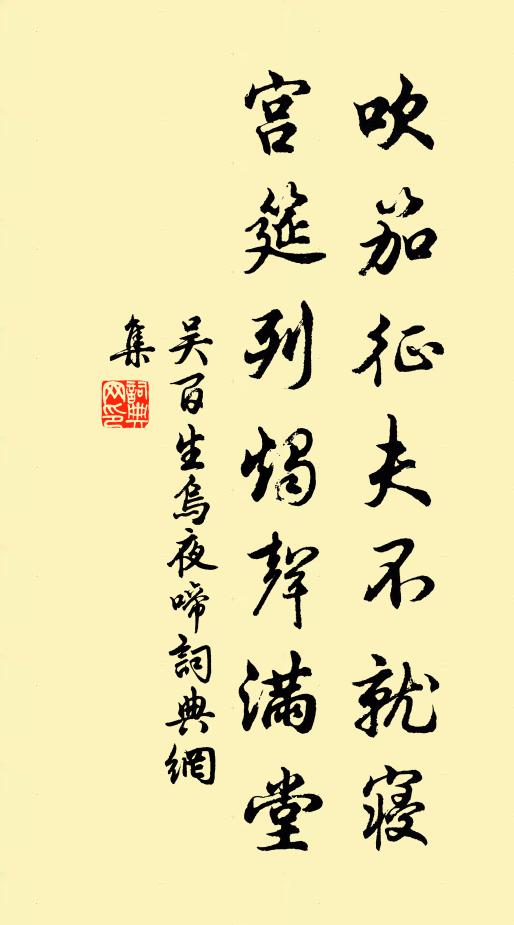 吹笳征夫不就寝
宫筵列燭聲满堂
吴百生烏夜啼詞典網
集
詞典網印